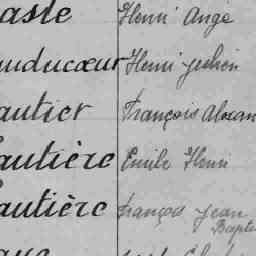 aste Henri Ange
uducœur Henri Julien
autier François Alexan
autière Emile Henri
autière François Jean
Bapti